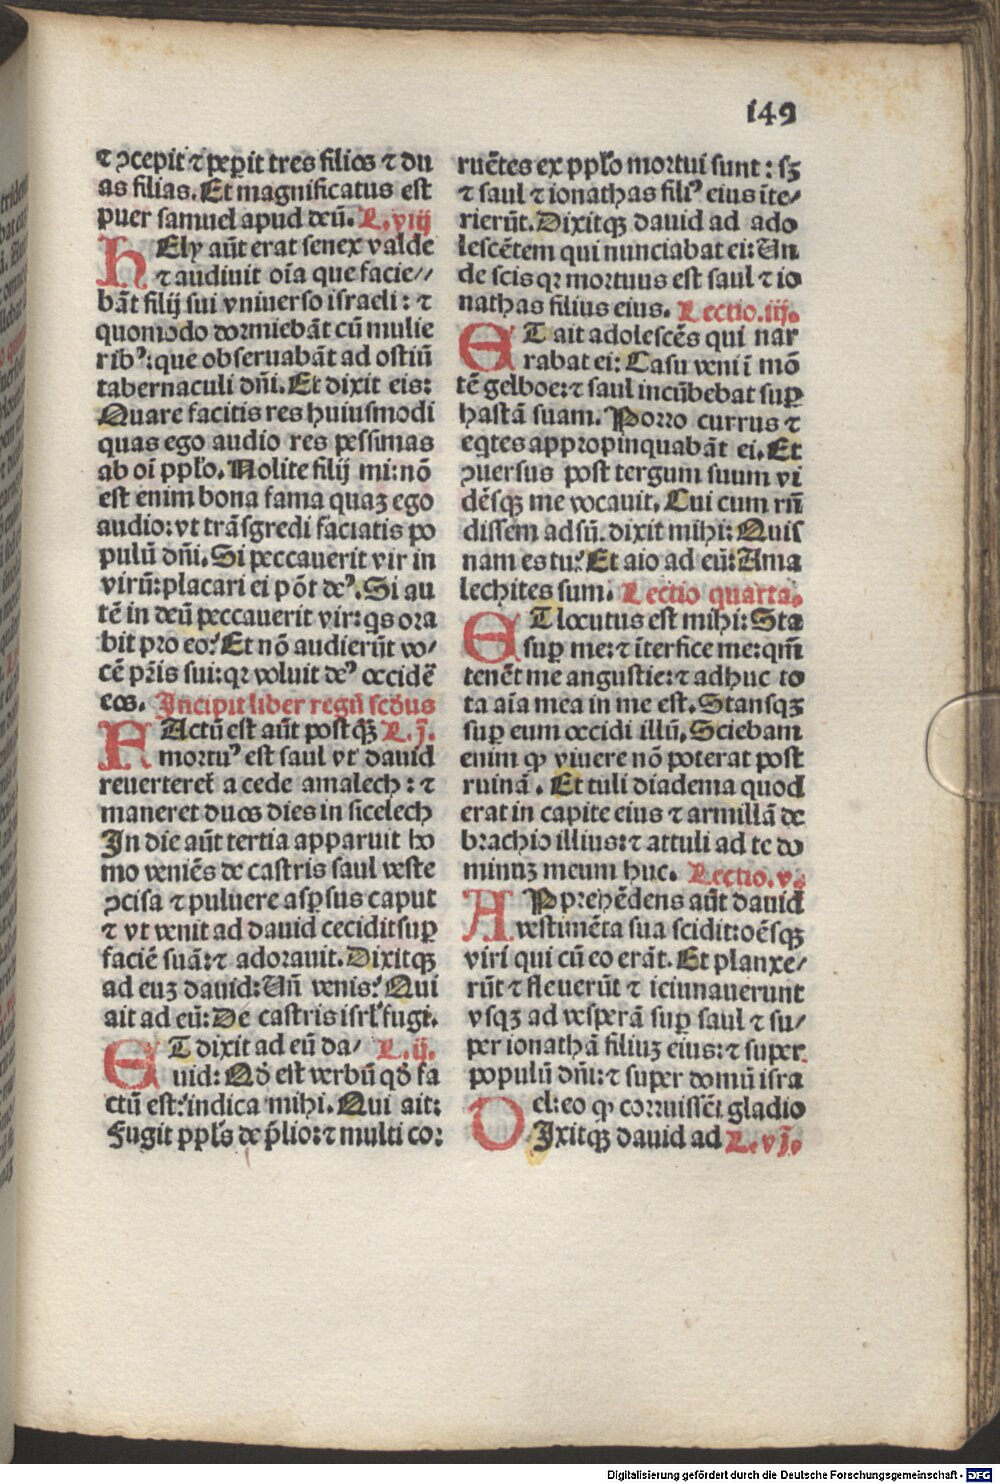 149
⁊ ↄcepit ⁊ peperit tres filios ⁊ du
as filias. Et magnificatus est
puer samuel apud deū. L.viij
HEly aūt erat senex valde
⁊ audiuit oīa que facie//
bāt filij sui vniuerso israeli: ⁊
quomodo dormiebāt cū mulie
ribꝰ: que obseruabāt ad ostiū
tabernaculi dn̄i. Et dixit eis:
Quare facitis res huiusmodi
quas ego audio res pessimas
ab oī ppl̓o. Nolite filij mi: nō
est enim bona fama quaꝫ ego
audio: vt trāsgredi faciatis po
pulū dn̄i. Si peccauerit vir in
virū: placari ei pōt deꝰ. Si au
tē in deū peccauerit vir: qs ora
bit pro eo? Et nō audierūt vo/
cē pr̄is sui: qꝛ voluit deꝰ occidē
eos. Incipit liber regū scd̄us
FActū est aūt postqꝫ̄ L.j.
mortuꝰ est saul vt dauid
reuerteret̄ a cede amalech: ⁊
maneret duos dies in sicelech
In die aūt tertia apparuit ho
mo veniēs de castris saul veste
ↄcisa ⁊ puluere asꝑsus caput
⁊ vt venit ad dauid cecidit suꝑ
faciē suā: ⁊ adorauit. Dixitqꝫ
ad euꝫ dauid: Un̄ venis? Qui
ait ad eū: De castris isrl̓ fugi.
ET dixit ad eū da/ L.ij.
uid: Qd̄ est verbū qd̄ fa
ctū est? indica mihi. Qui ait:
Fugit ppl̓s de p̄lio: ⁊ multi co:
ruētes ex ppl̓o mortui sunt: sꝫ
⁊ saul ⁊ ionathas filiꝰ eius īte/
rierūt. Dixitqꝫ dauid ad ado
lescētem qui nunciabat ei: Un
de scis qꝛ mortuus est saul ⁊ io
nathas filius eius. Lectio.iij.
ET ait adolescēs qui nar
rabat ei: Casu veni ī mō
tē gelboe: ⁊ saul incūbebat suꝑ
hastā suam. Porro currus ⁊
eqtes appropinquabāt ei. Et
ↄuersus post tergum suum vi
dēsqꝫ me vocauit. Cui cum rn̄
dissem adsū. dixit mihi: Quis
nam es tu? Et aio ad eū: Ama
lechites sum. Lectio quarta.
ET locutus est mihi: Sta
suꝑ me: ⁊ īterfice me: qm̄
tenēt me angustie: ⁊ adhuc to
ta aīa mea in me est. Stansqꝫ
suꝑ eum occidi illū. Sciebam
enim ꝙ viuere nō poterat post
ruinā. Et tuli diadema quod
erat in capite eius ⁊ armillā de
brachio illius: ⁊ attuli ad te do
minuꝫ meum huc. Lectio.v.
APprehēdens aūt dauid
vestimēta sua scidit: oēsqꝫ
viri qui cū eo erāt. Et planxe/
rūt ⁊ fleuerūt ⁊ ieiunauerunt
vsqꝫ ad vesperā suꝑ saul ⁊ su/
per ionathā filiuꝫ eius: ⁊ super
populū dn̄i: ⁊ super domū isra
el: eo ꝙ corruissēt gladio
DIxitqꝫ dauid ad L.vj.
Digitalisierung gefördert durch die Deutsche Forschungsgemeinschaft - DFG